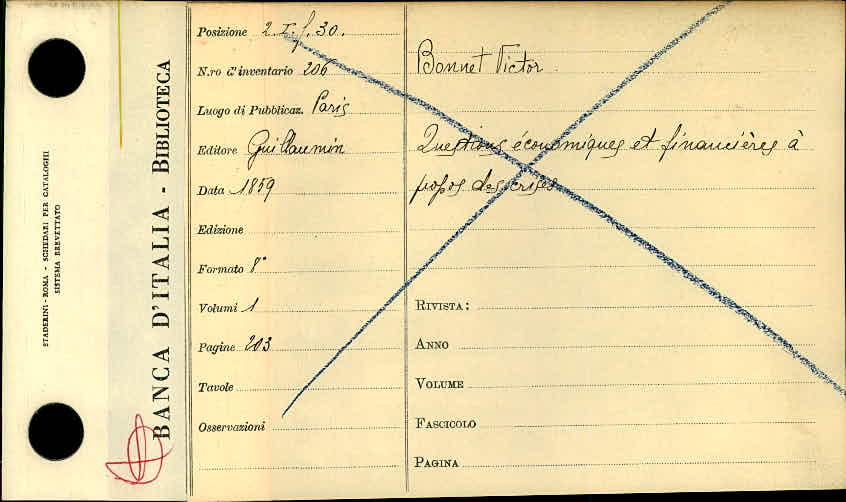 STADERINI - ROMA - SCHEDARI PER CATALOGHI
SISTEMA BREVETTATO
BANCA D'ITALIA - BIBLIOTECA
Posizione 2. I. f. 30.
N.ro d'inventario 206
Luogo di Pubblicaz. Paris
Editore Guillaumin
Data 1859
Edizione
Formato 8°
Volumi 1
Pagine 203
Tavole
Osservazioni
Bonnet Victor
Questions économiques et financières à
propos des crises
RIVISTA:
ANNO
VOLUME
FASCICOLO
PAGINA